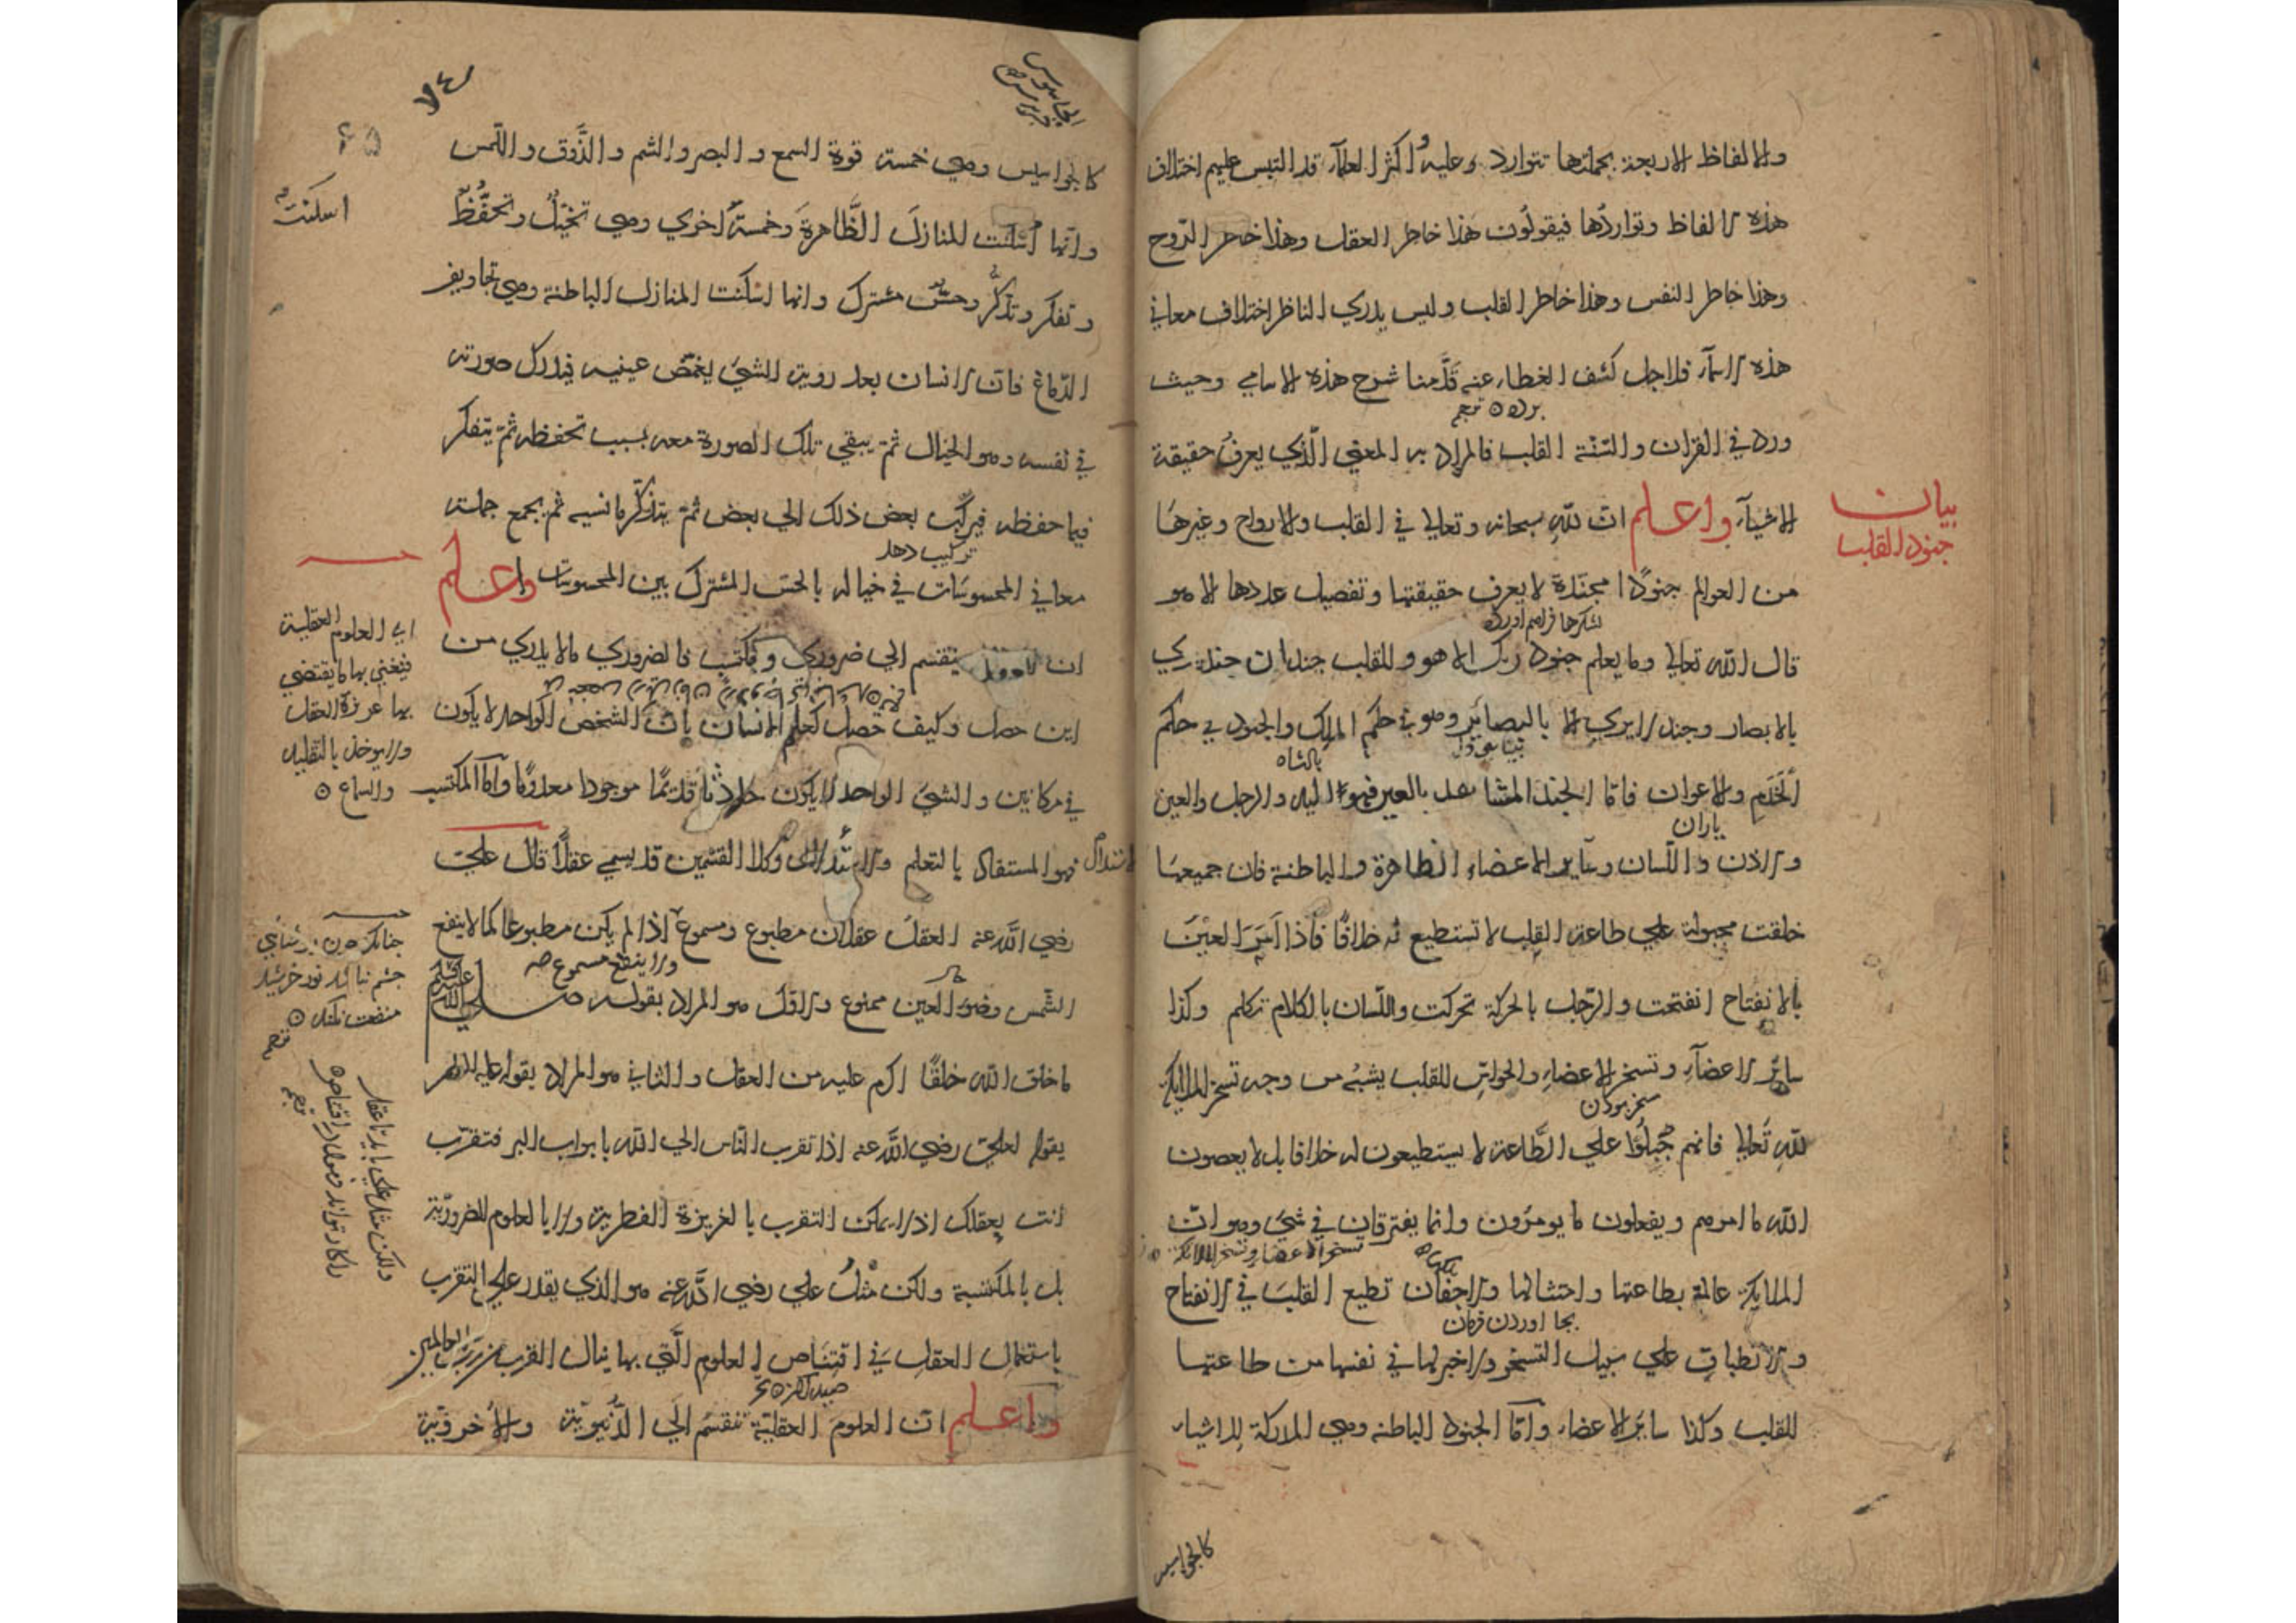 والالفاظ الاربعة بجملتها تتوارد وعليه واكثر العلمآء قد التبس عليهم اختلاف
هذه الالفاظ وتواردها فيقولون هذا خاطر العقل وهذا خاطر الروح
وهذا خاطر النفس وهذا خاطر القلب وليس يدري الناظر اختلاف معاني
هذه الاسمآء فلاجل كشف الغطاء عنه قدمنا شرح هذه الاسامي وحيث
ورد في القران والسنة القلب فالمراد به المعنى الذي يعرف حقيقة
الاشيآء واعلم ان لله سبحانه وتعالى في القلب والارواح وغيرها
بيان
جنود القلب
من العوالم جنودًا مجندة لا يعرف حقيقتها وتفصيل عددها الا هو
لشكرها فراهم اورده
قال الله تعالى وما يعلم جنود ربك الا هو وللقلب جندان جند يري
بالابصار وجند لا يري الا بالبصاير وهو في حكم الملك والجنود في حكم
الخدم والاعوان فاما الجند المشاهد بالعين فهو اليد والرجل والعين
ياران
والاذن واللسان وساير الاعضاء الظاهرة والباطنة فان جميعها
خلقت مجبولة علي طاعة القلب لا تستطيع له خلافًا فاذا امر العين
بالانفتاح انفتحت والرجل بالحركة تحركت واللسان بالكلام تكلم وكذا
سائر الاعضآء وتسخر الاعضاء والحواس للقلب يشبه من وجه تسخر الملايكة
لله تعالى فانهم جبلوا علي الطاعة لا يستطيعون له خلافا بل لا يعصون
الله ما امرهم ويفعلون ما يومرون وانما يفترقان في شيء وهو ان
تسخر الاعضاء وتسخر الملائكة
الملايكة عالمة بطاعتها وامتثالها والاجفان تطيع القلب في الانفتاح
بجا اوردن فرمان
والانطباق علي سبيل التسخر ولا خبر لها في نفسها من طاعتها
للقلب وكذا ساير الاعضاء واما الجنود الباطنه وهي المدركة للاشياء
كالجواسيس
٧٤
٦٥
كالجواسيس وهي خمسة قوة السمع والبصر والشم والذَّوق واللمس
وانها اسكنت المنازل الظَّاهرة وخمسة اخري وهي تخيل وتحفظ
اسكنت
وتفكر وتذكر وحس مشترك وانها اسكنت المنازل الباطنة وهي تجاويف
الدماغ فان الانسان بعد روية الشيء يغمض عينيه فيدرك صورته
في نفسه وهو الخيال ثم يبقي تلك الصورة معه بسبب تحفظه ثم يتفكر
فيما حفظه فيركب بعض ذلك الي بعض ثم يتذكر ما نسيه ثم يجمع جملة
تركيب دهد
معاني المحسوسات في خياله بالحس المشترك بين المحسوسات واعلم
ان ينقسم الي ضروري ومكتسب فالضروري ما لا يدري من
اين حصل وكيف حصل كعلم الانسان بان الشخص الواحد لا يكون
في مكانين والشيء الواحد لا يكون حادثا قديمًا موجودا معدومًا واما المكتسب
فهو المستفاد بالتعلم والاستدلال وكلا القسمين قد يسمي عقلًا قال علي
رضي الله عنه العقل عقلان مطبوع ومسموع اذا لم يكن مطبوعا كما لا ينفع
ولا ينفع مسموع صح
الشمس وضوء العين ممنوع والاول هو المراد بقوله صلى الله عليه وسلم
ما خلق الله خلقًا اكرم عليه من العقل والثاني هو المراد بقوله عليه السلام
لعلي رضي الله عنه اذا تقرب الناس الي الله بابواب البر فتقرب
انت بعقلك اذ لا يمكن التقرب بالغريزة الفطرية ولا بالعلوم الضرورية
بل بالمكتسبة ولكن مثل علي رضي الله عنه هو الذي يقدر علي التقرب
باستعمال العقل في اقتناص العلوم التي بها ينال القرب من رب العالمين
واعلم ان العلوم العقلية تنقسم الي الدُّنيوية والاخروية
اي العلوم العقلية
فيعني بها ما يقتضي
بها غريزة العقل
ولا يوخذ بالتقليد
والسماع
چنانكه چون روشنايي
چشم نباشد نور خرشيد
منفعت نكند
ترجمه
ولكن مثل علي بايد تا عقل